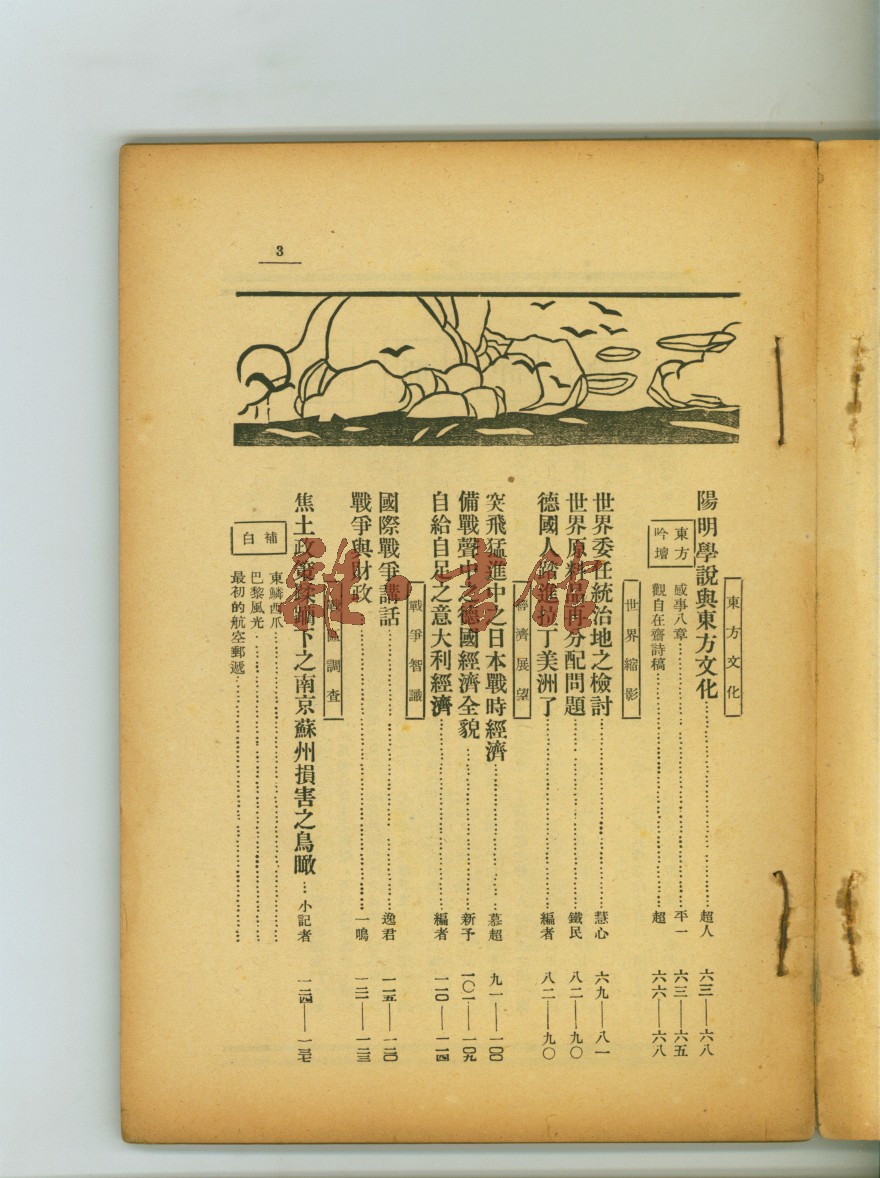 3
東方文化
陽明學說與東方文化 超人 六三——六八
東方吟壇
感事八章 平一 六三——六五
觀自在齋詩稿 超 六六——六八
世界縮影
世界委任統治地之檢討 慧心 六九——八一
世界原料品再分配問題 鐵民 八二——九〇
德國人踏進拉丁美洲了 編者 八二——九〇
經濟展望
突飛猛進中之日本戰時經濟 慕超 九一——一〇〇
備戰聲中之德國經濟全貌 新予 一〇一——一〇九
自給自足之意大利經濟 編者 一一〇——一一四
戰爭智識
國際戰爭講話 逸君 一一五——一二〇
戰爭與財政 一鳴 一二一——一二三
調查
焦土政策蹂躪下之南京蘇州損害之鳥瞰 小記者 一二四——一二七
補白
東鱗西爪
巴黎風光
最初的航空郵遞
雜·書館